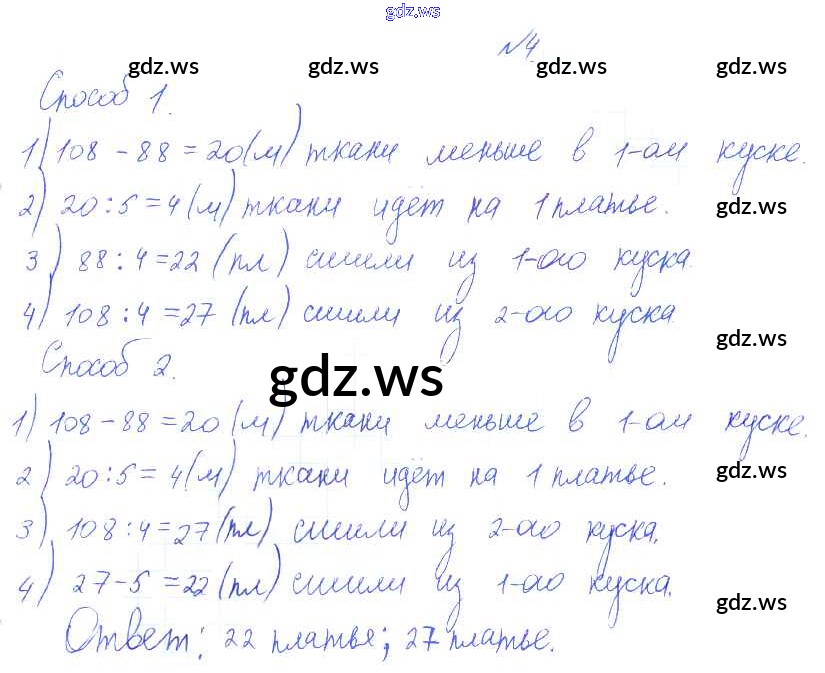 gdz.ws
№4
gdz.ws gdz.ws gdz.ws gdz.ws
Способ 1.
1) 108 - 88 = 20 (м) ткани меньше в 1-ом куске.
2) 20 : 5 = 4 (м) ткани идёт на 1 платье.
gdz.ws
3) 88 : 4 = 22 (пл) сшили из 1-ого куска.
4) 108 : 4 = 27 (пл) сшили из 2-ого куска
gdz.ws
Способ 2.
gdz.ws
1) 108 - 88 = 20 (м) ткани меньше в 1-ом куске.
2) 20 : 5 = 4 (м) ткани идёт на 1 платье.
gdz.ws
3) 108 : 4 = 27 (пл) сшили из 2-ого куска.
4) 27 - 5 = 22 (пл) сшили из 1-ого куска.
gdz.ws
Ответ: 22 платья; 27 платье.